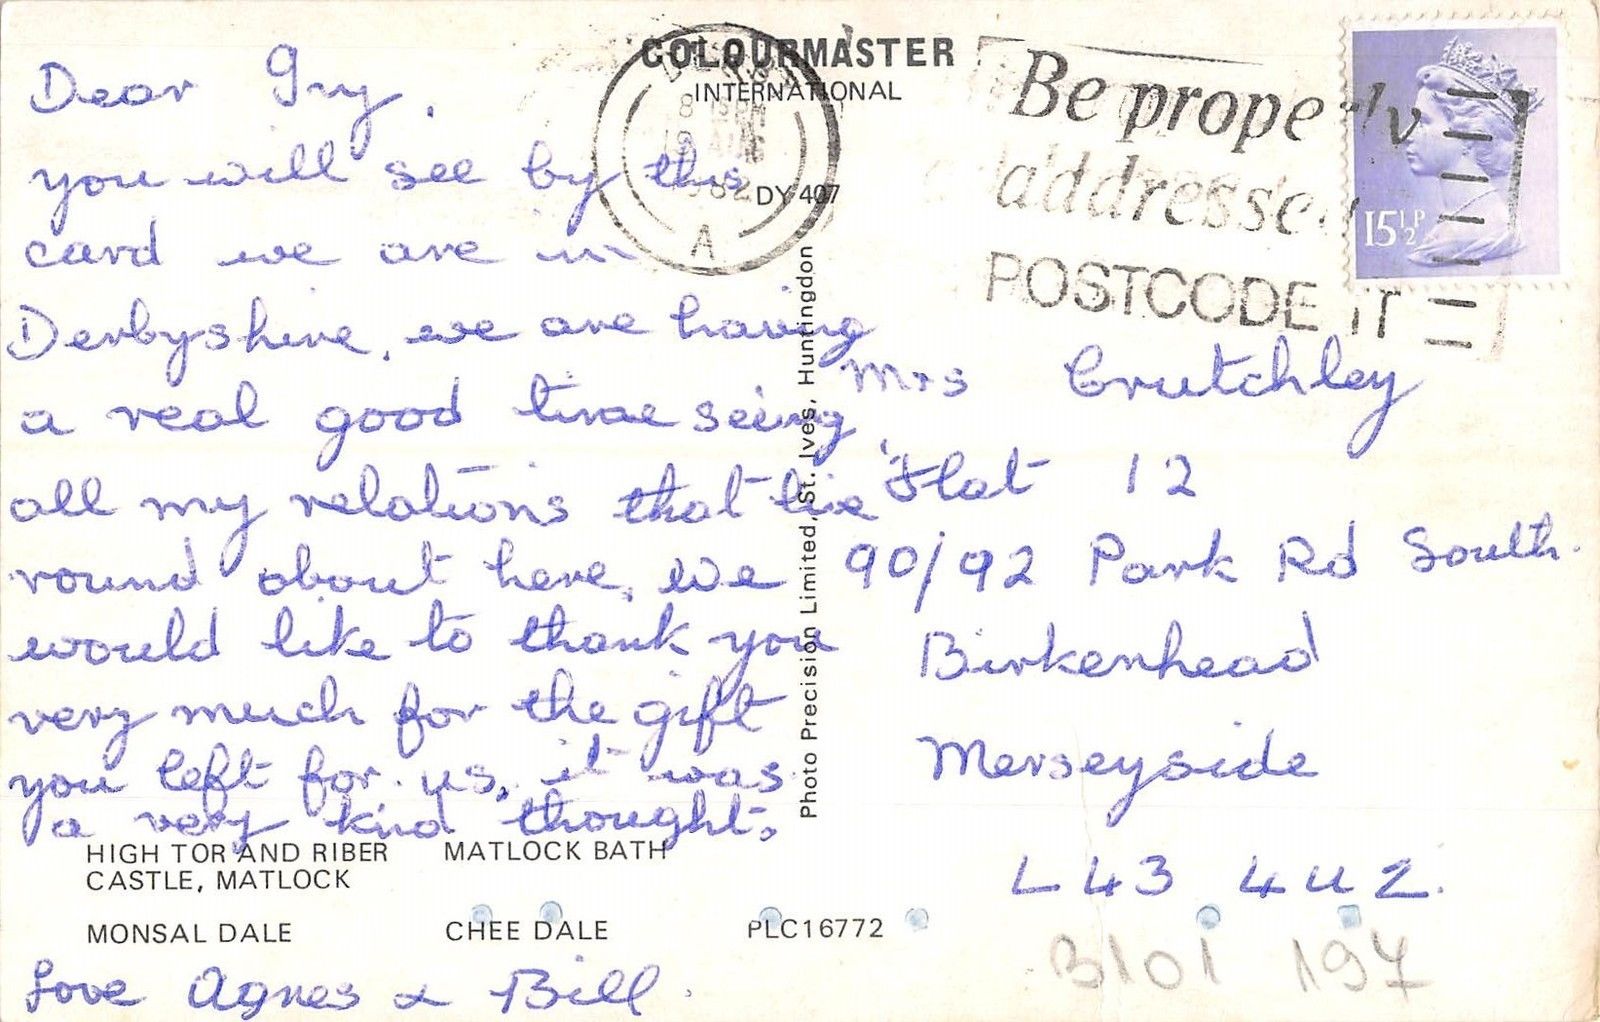 COLOURMASTER
INTERNATIONAL
DY 407
8 PM
AUG
1982
A
Be prope ly
addressed
POSTCODE IT
15½P
Dear Ivy,
you will see by this
card we are in
Derbyshire, we are having
a real good time seeing
all my relations that live
round about here, we
would like to thank you
very much for the gift
you left for us, it was
a very kind thought.
HIGH TOR AND RIBER
CASTLE, MATLOCK
MATLOCK BATH
MONSAL DALE
CHEE DALE
PLC16772
Love Agnes & Bill.
Photo Precision Limited, St. Ives, Huntingdon
Mrs Crutchley
Flat 12
90/92 Park Rd South.
Birkenhead
Merseyside
L43 4UZ.
3101 197